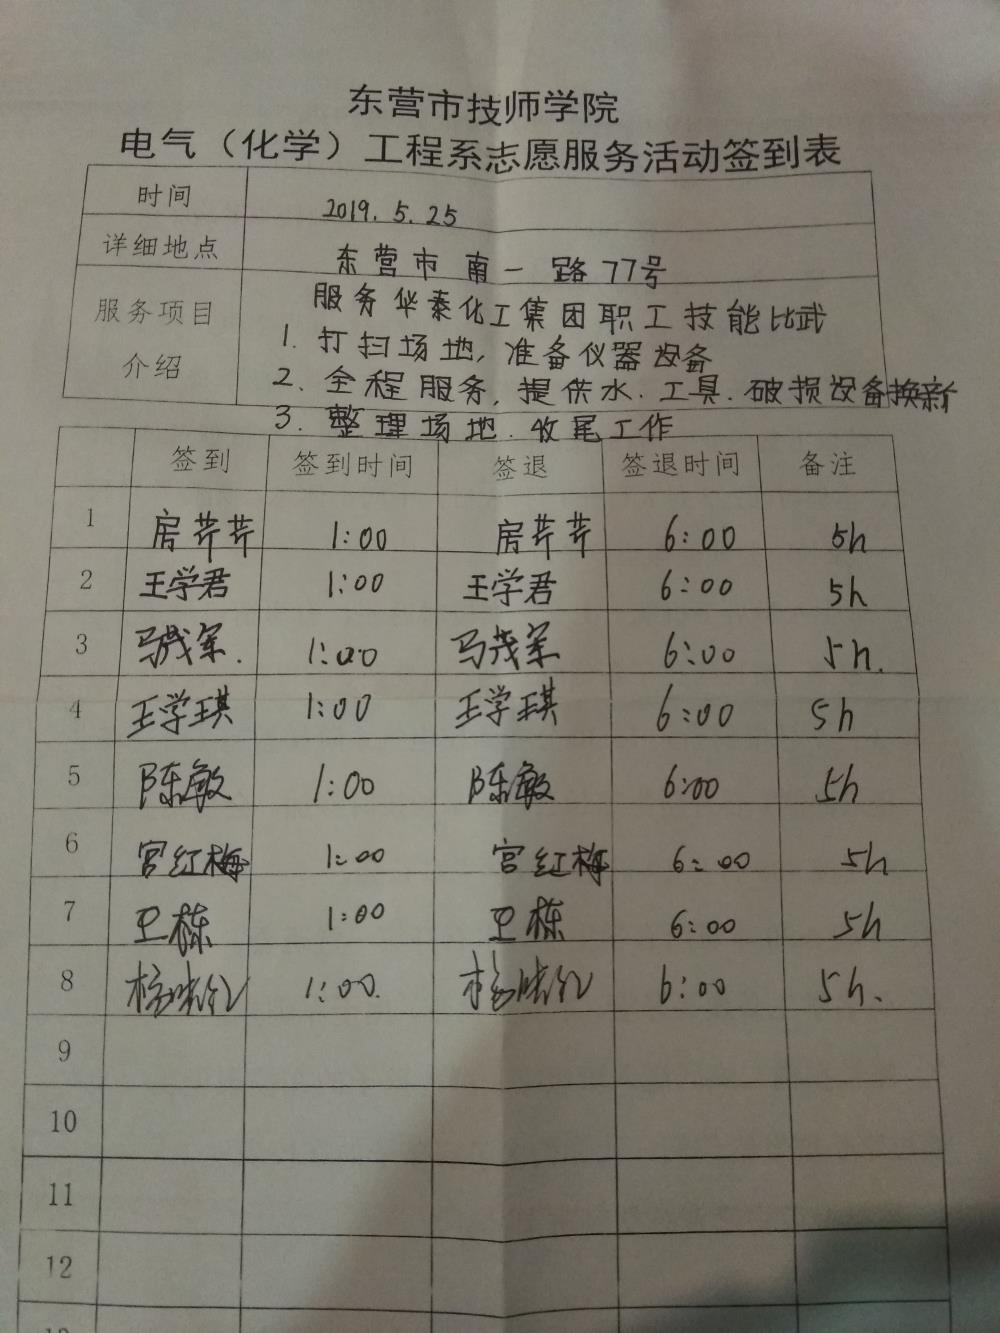 东营市技师学院
电气（化学）工程系志愿服务活动签到表
时间 2019.5.25
详细地点 东营市南一路77号
服务项目介绍 服务华泰化工集团职工技能比武
1. 打扫场地，准备仪器设备
2. 全程服务，提供水.工具.破损设备换新
3. 整理场地.收尾工作
签到 签到时间 签退 签退时间 备注
1 房芹芹 1:00 房芹芹 6:00 5h
2 王学君 1:00 王学君 6:00 5h
3 马茂军. 1:00 马茂军 6:00 5h.
4 王学琪 1:00 王学琪 6:00 5h
5 陈敏 1:00 陈敏 6:00 5h
6 宫红梅 1:00 宫红梅 6:00 5h
7 卫栋 1:00 卫栋 6:00 5h
8 1:00. 6:00 5h.
9
10
11
12